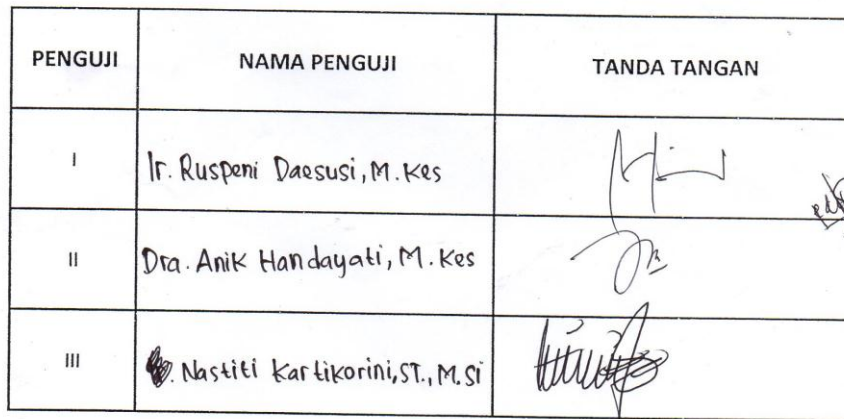 PENGUJI NAMA PENGUJI TANDA TANGAN
I Ir. Ruspeni Daesusi, M. Kes
II Dra. Anik Handayati, M. Kes
III . Nastiti Kartikorini, ST., M. Si